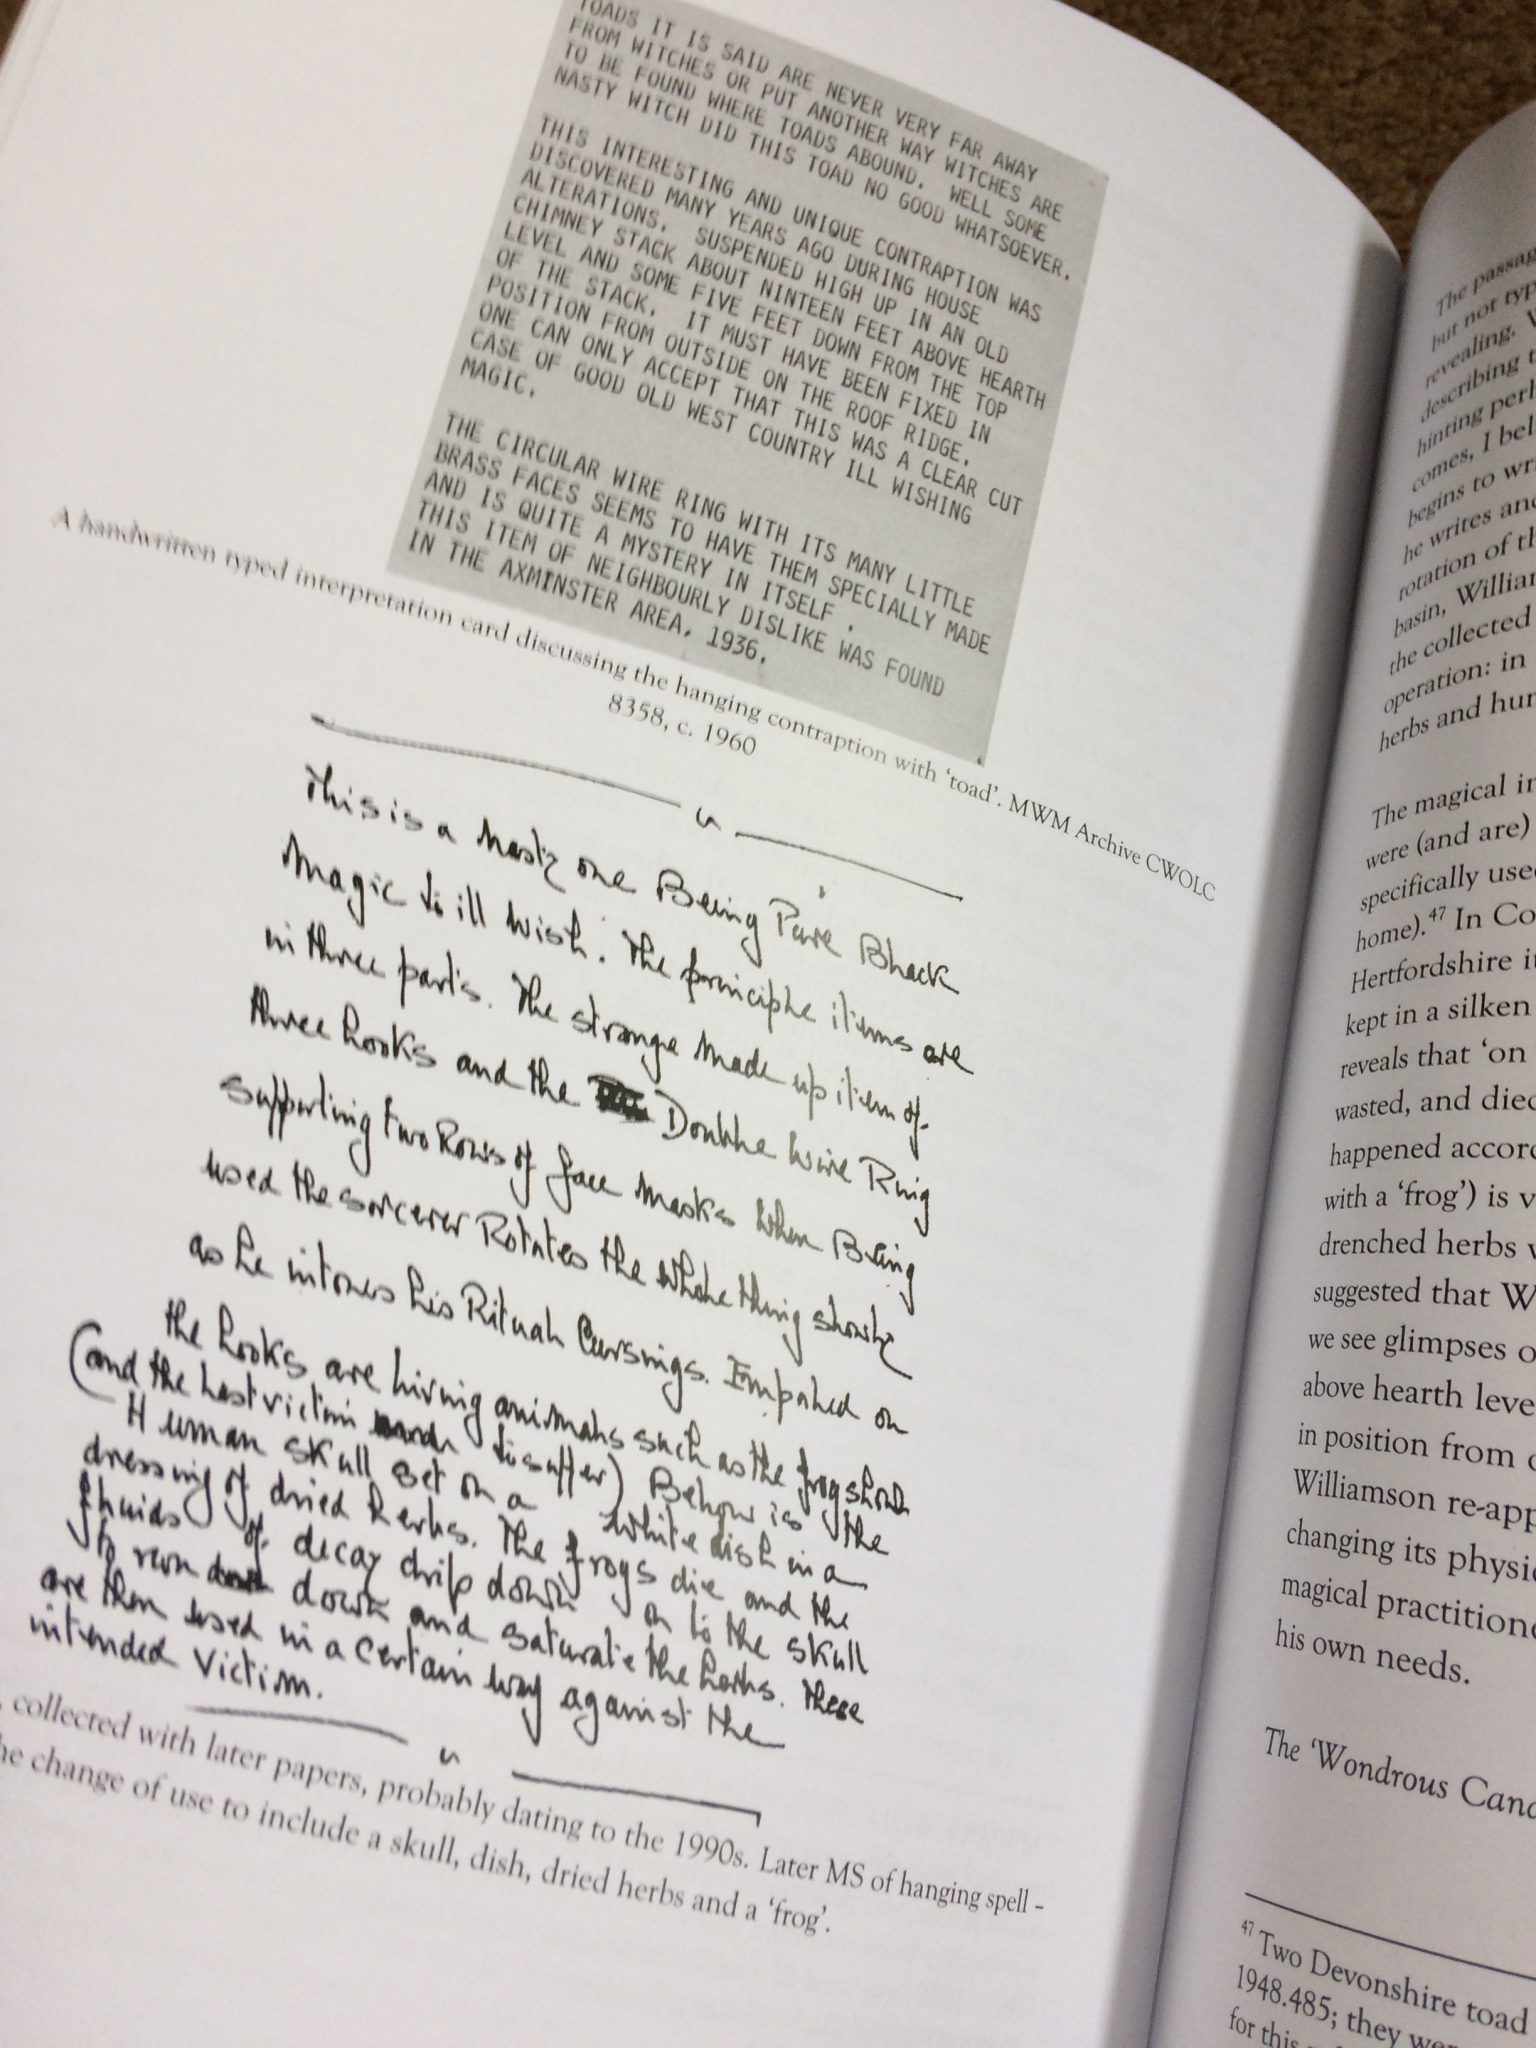 TOADS IT IS SAID ARE NEVER VERY FAR AWAY
FROM WITCHES OR PUT ANOTHER WAY WITCHES ARE
TO BE FOUND WHERE TOADS ABOUND. WELL SOME
NASTY WITCH DID THIS TOAD NO GOOD WHATSOEVER.
THIS INTERESTING AND UNIQUE CONTRAPTION WAS
DISCOVERED MANY YEARS AGO DURING HOUSE
ALTERATIONS. SUSPENDED HIGH UP IN AN OLD
CHIMNEY STACK ABOUT NINTEEN FEET ABOVE HEARTH
LEVEL AND SOME FIVE FEET DOWN FROM THE TOP
OF THE STACK. IT MUST HAVE BEEN FIXED IN
POSITION FROM OUTSIDE ON THE ROOF RIDGE.
ONE CAN ONLY ACCEPT THAT THIS WAS A CLEAR CUT
CASE OF GOOD OLD WEST COUNTRY ILL WISHING
MAGIC.
THE CIRCULAR WIRE RING WITH ITS MANY LITTLE
BRASS FACES SEEMS TO HAVE THEM SPECIALLY MADE
AND IS QUITE A MYSTERY IN ITSELF .
THIS ITEM OF NEIGHBOURLY DISLIKE WAS FOUND
IN THE AXMINSTER AREA. 1936.
A handwritten typed interpretation card discussing the hanging contraption with ‘toad’. MWM Archive CWOLC
8358, c. 1960
This is a Nasty one Being Pure Black
Magic to ill wish. The principle items are
in three parts. The strange made up item of
three hooks and the Double wire Ring
supporting two Rows of face masks when Being
used the sorcerer Rotates the whole thing slowly
as he intones his Ritual Cursings. Impaled on
the hooks are living animals such as the frog shown
(and the last victim to suffer) Below is the
Human skull set on a white dish in a
dressing of dried herbs. The frogs die and the
fluids of decay drip down on to the skull
to run down and saturate the herbs. These
are then used in a certain way against the
intended victim.
, collected with later papers, probably dating to the 1990s. Later MS of hanging spell –
he change of use to include a skull, dish, dried herbs and a ‘frog’.
The passag
but not typ
revealing. W
describing t
hinting perh
comes, I bel
begins to wr
he writes and
rotation of th
basin, William
the collected
operation: in
herbs and hum
The magical in
were (and are)
specifically use
home).47 In Co
Hertfordshire i
kept in a silken
reveals that ‘on
wasted, and died
happened accor
with a ‘frog’) is v
drenched herbs w
suggested that W
we see glimpses o
above hearth leve
in position from o
Williamson re-app
changing its physi
magical practitione
his own needs.
The ‘Wondrous Canc
47 Two Devonshire toad
1948.485; they wer
for this